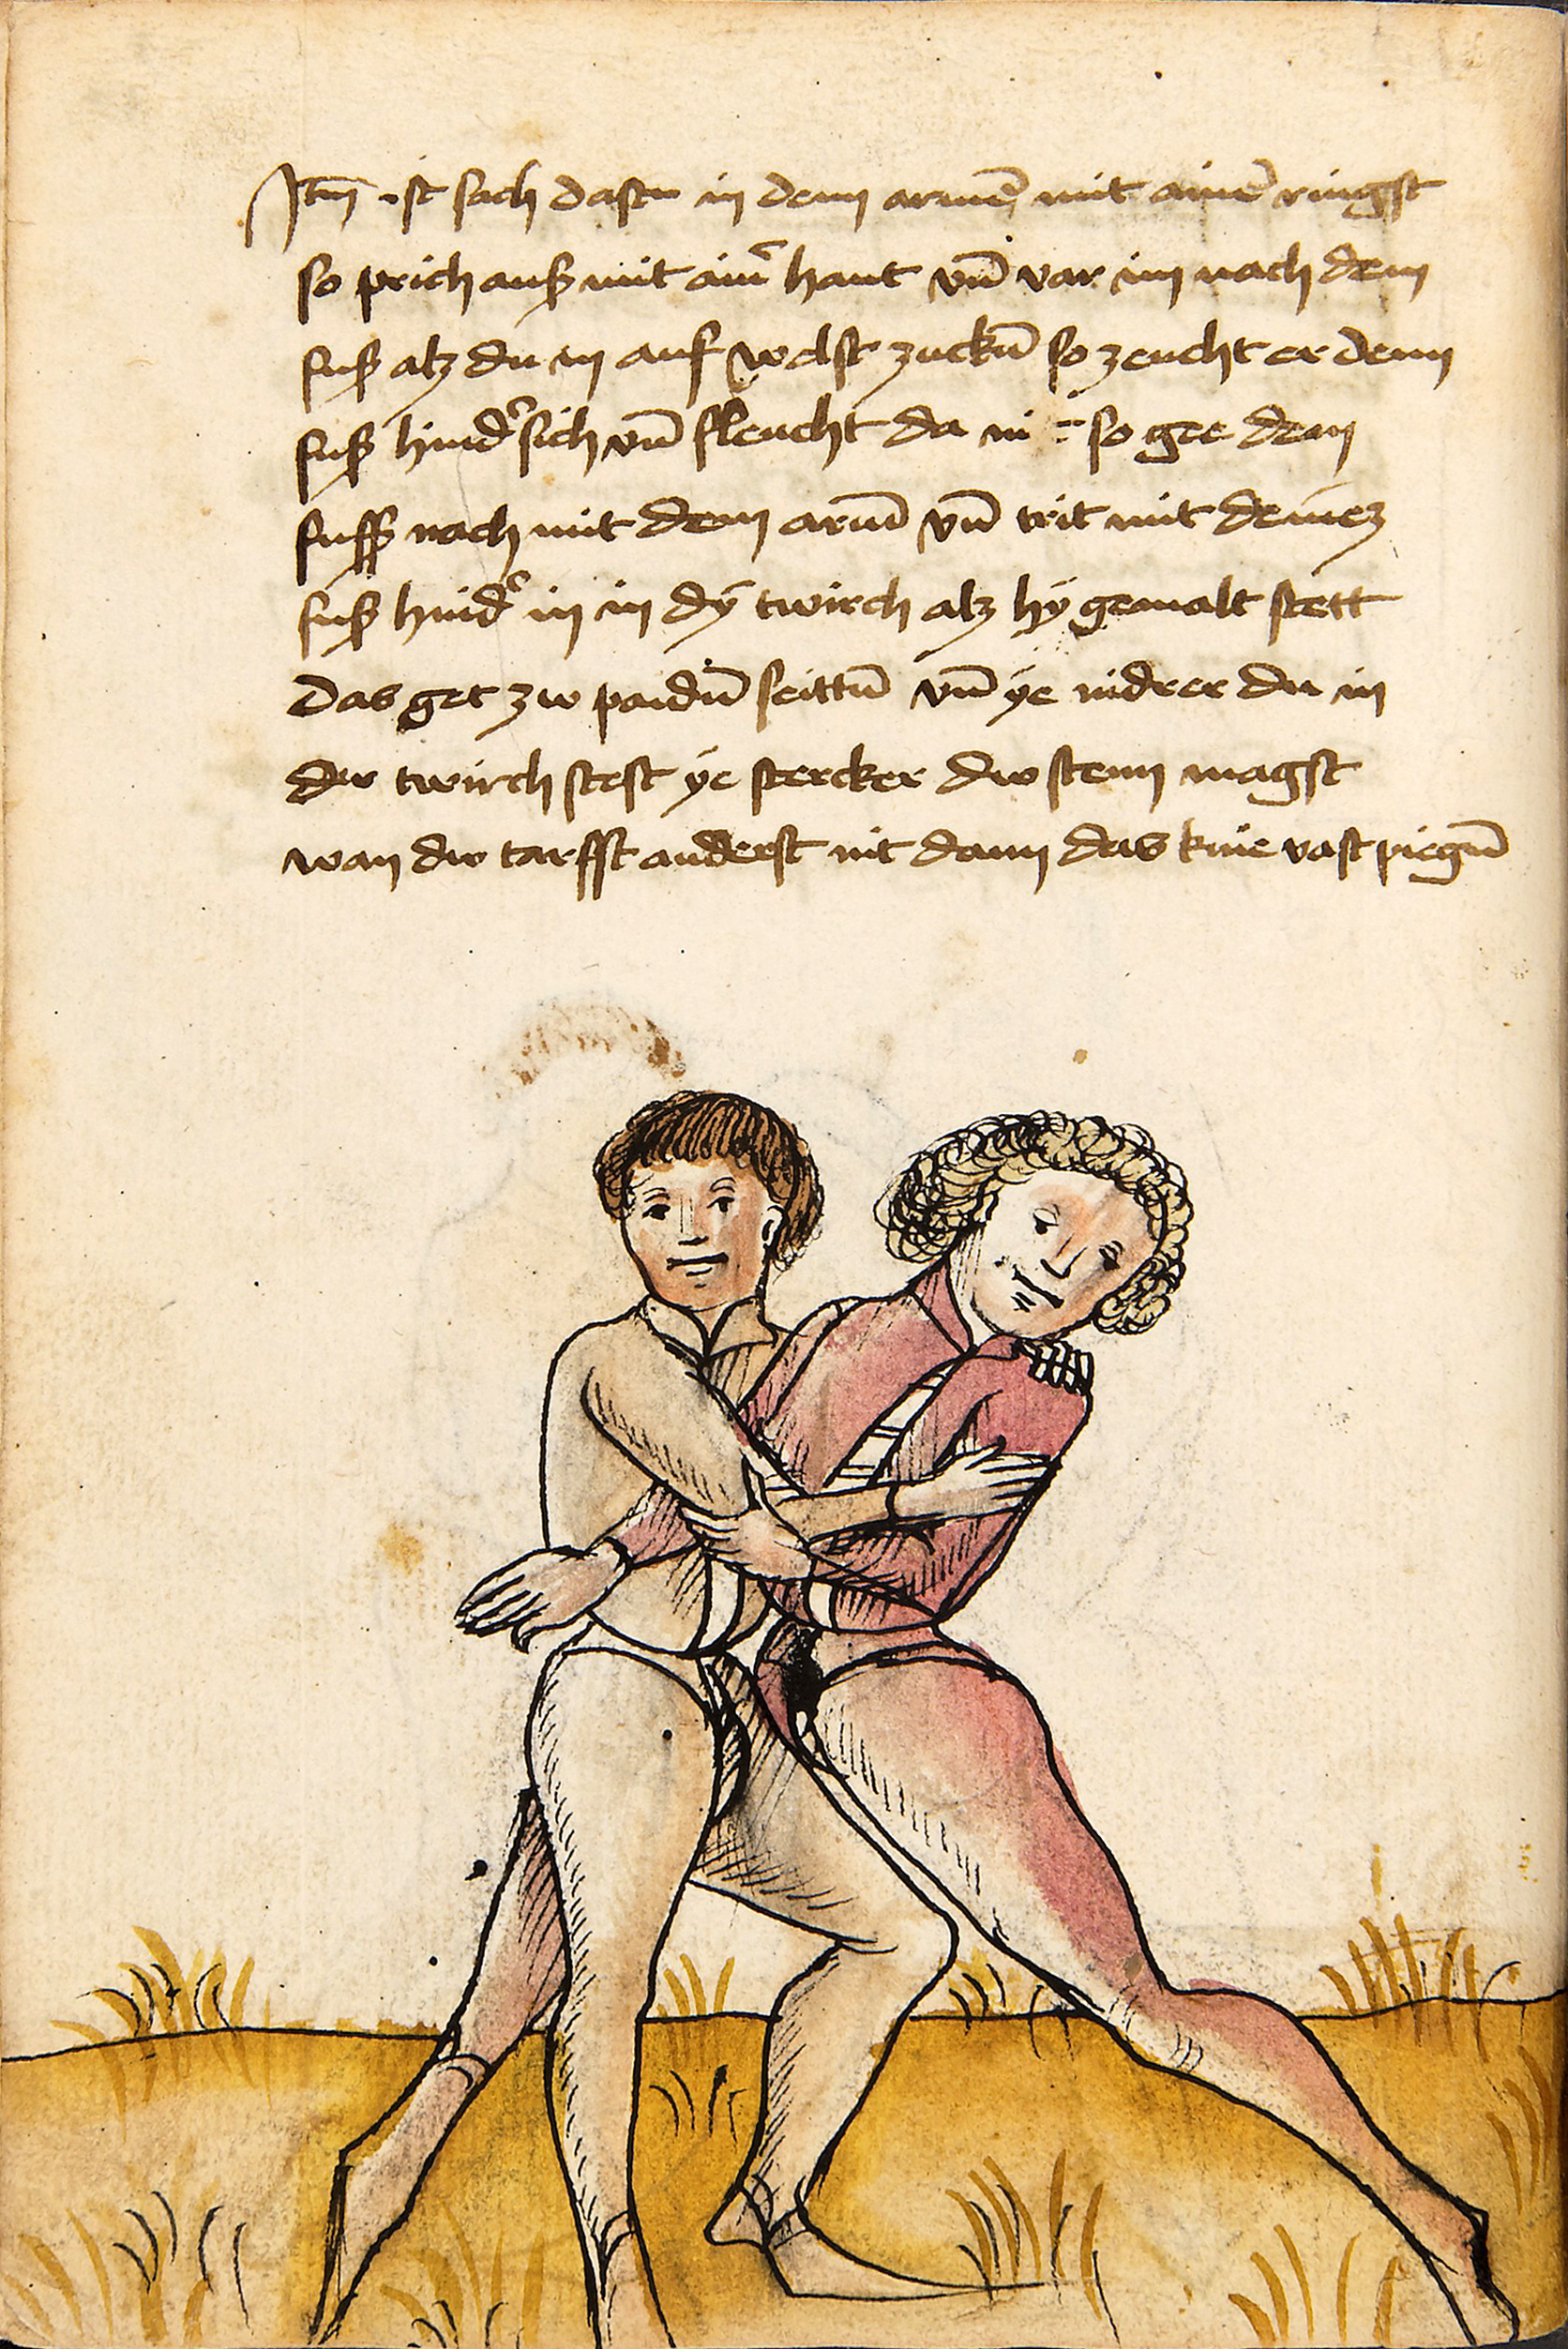 Itm̄ ist sach dastu in denn armē mit ainē ringst
so prich auß mit ainr̄ hant vn̄ var im nach dem
fuß alz du in auf welst zuckn̄ so zeucht er denn
fuß hindr̄ sich vn̄ fleucht da mi so gee dem
fuss nach mit dem arm̄ vn̄ trit mit deinez
fuß hindr̄ in in dÿ twirch alz hÿ gemalt stett
Das get zw paidn̄ seittn̄ vn̄ ÿe nidrer du in
der twirch stest ÿe stercker dw stenn magst
wan dw tarfst anderst nit dann das knie vast piegn̄